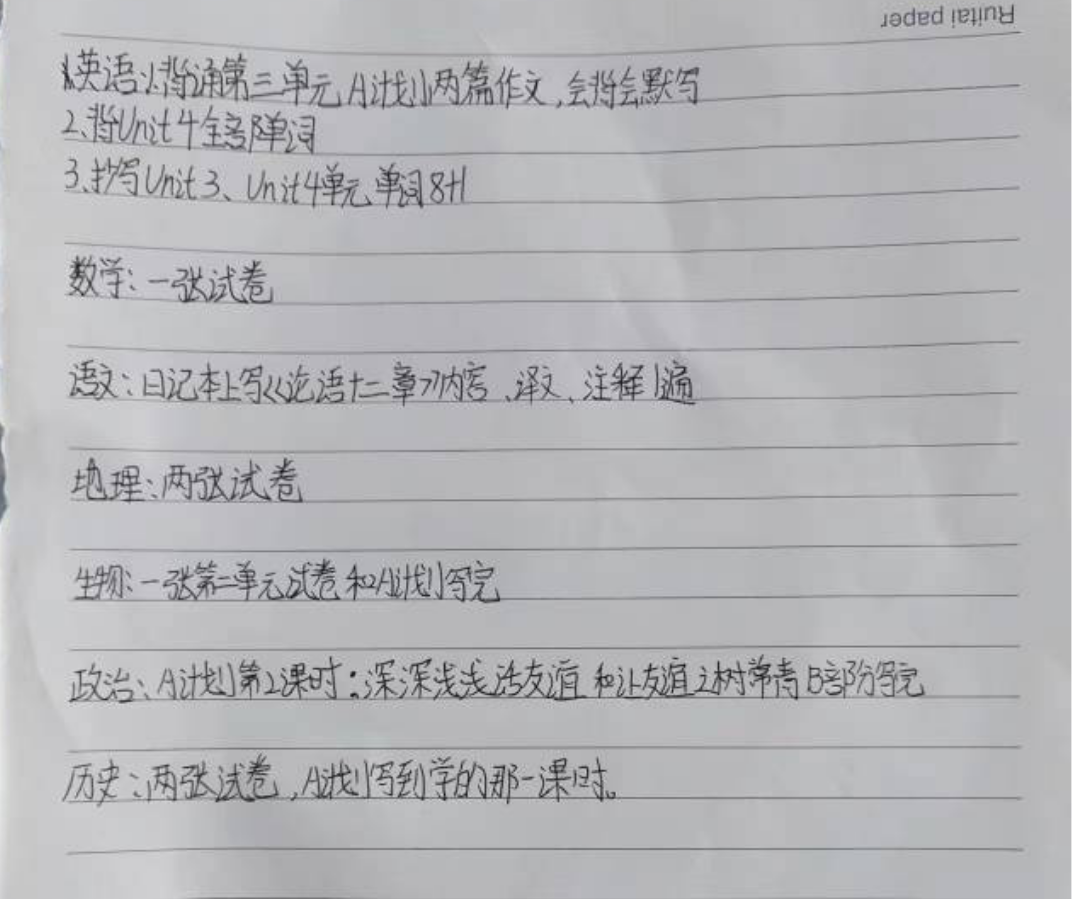 Ruitai paper
英语:1.背诵第三单元A计划两篇作文,会背会默写
2.背Unit4全部单词
3.抄写Unit3、Unit4单元单词8+1
数学:一张试卷
语文:日记本上写《论语十二章》内容、译文、注释1遍
地理:两张试卷
生物:一张第二单元试卷和A计划写完
政治:A计划第2课时:深深浅浅话友谊和让友谊之树常青B部分写完
历史:两张试卷,A计划写到学的那一课时。